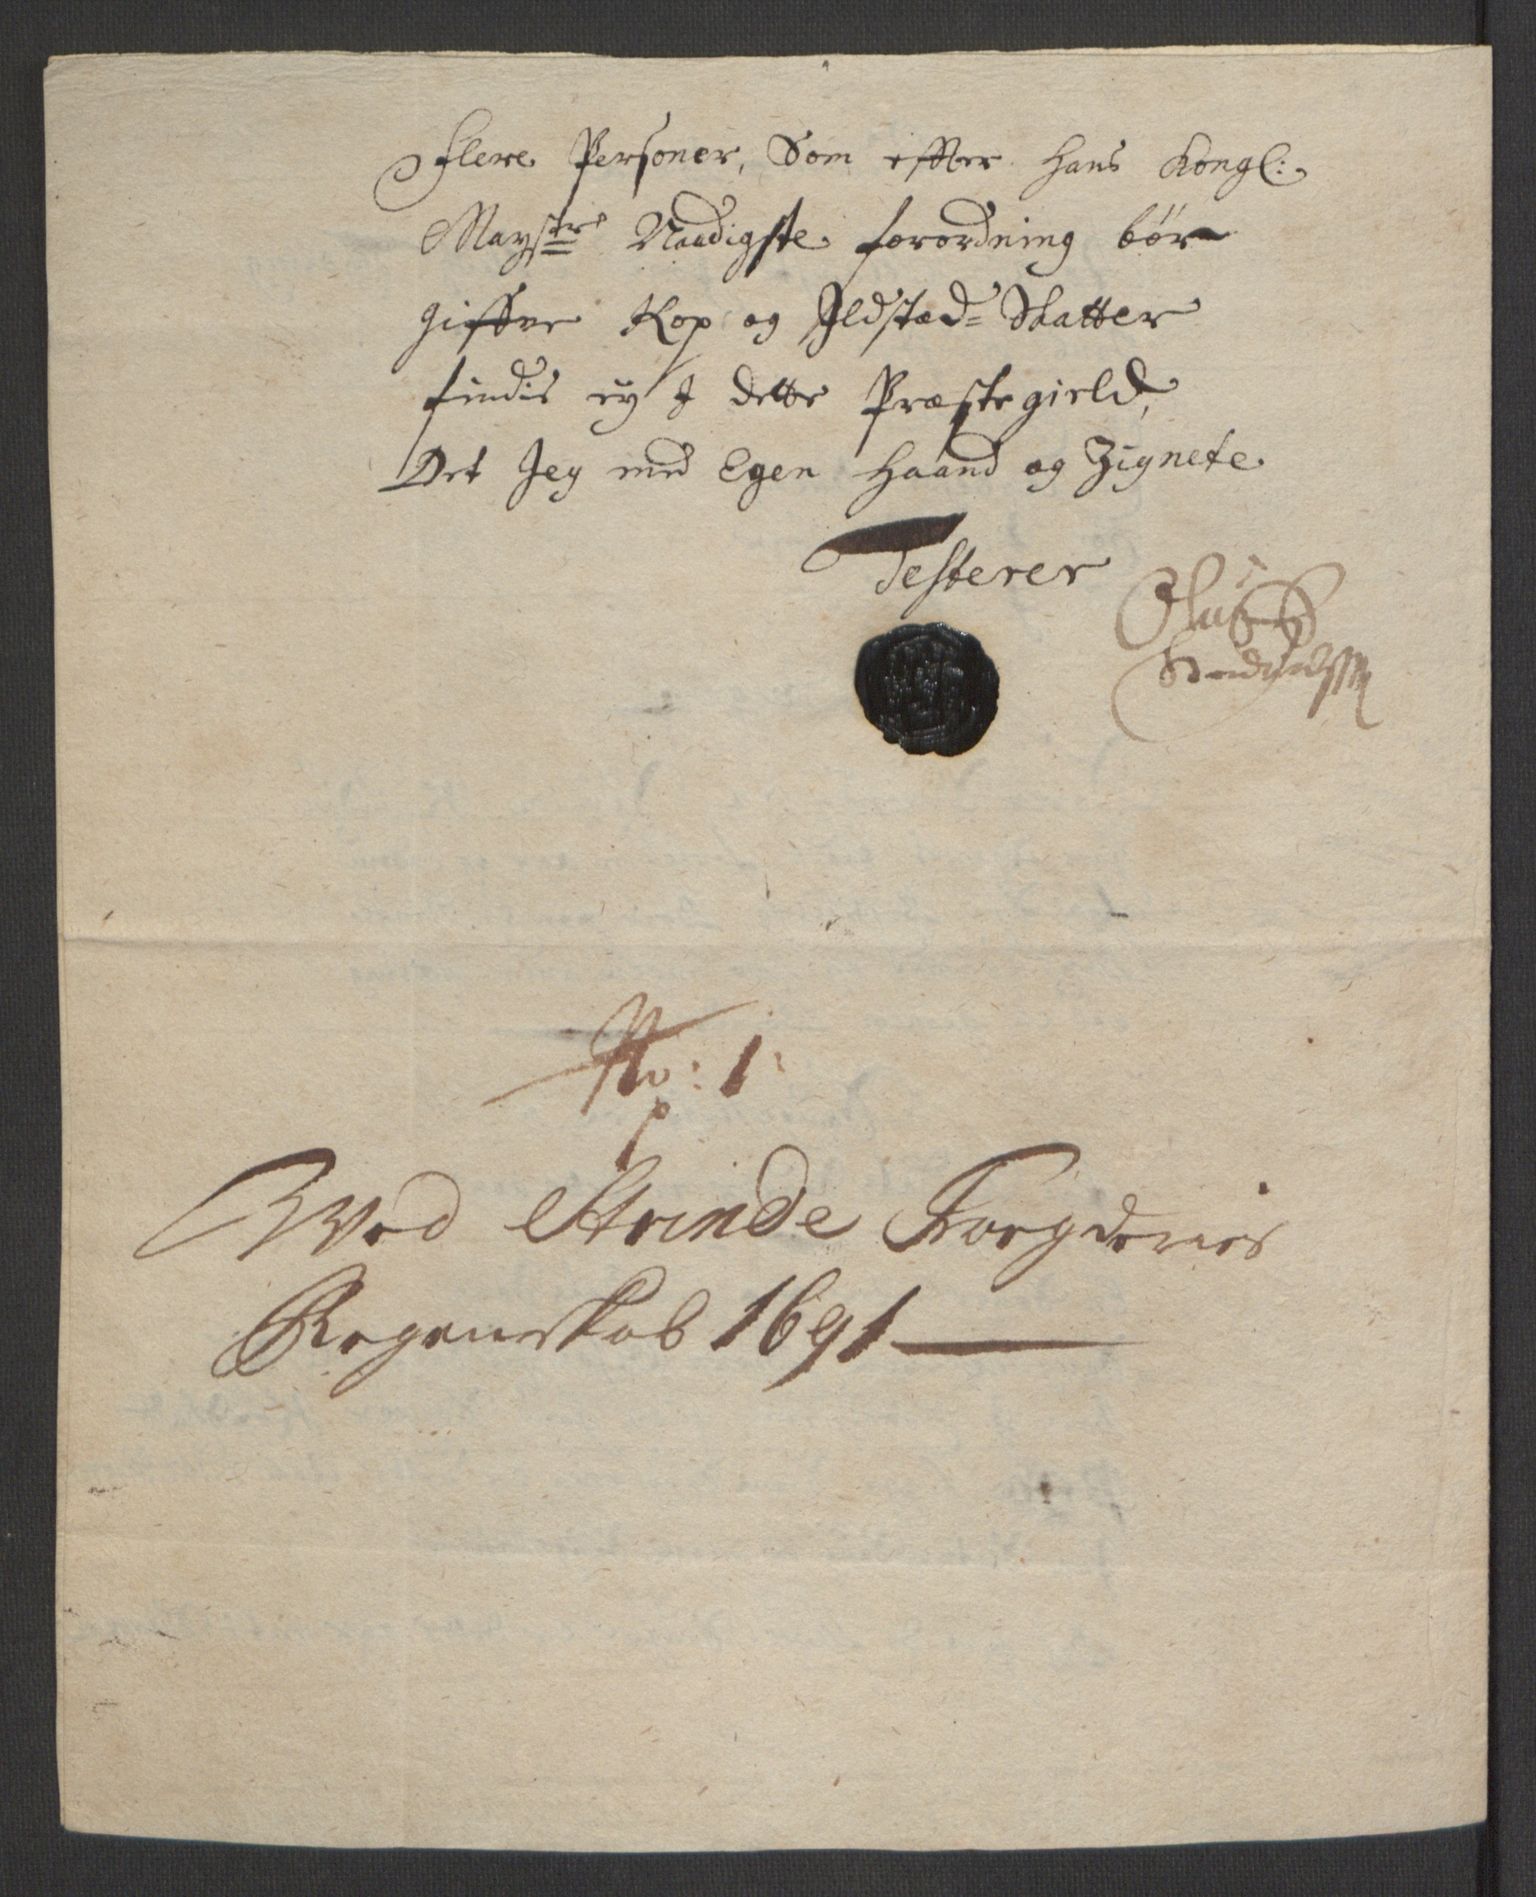 Flere Personer, Som effter Hans Kongl:
Maystr Naadigste forordning bør
giffue Kop og Ildstæd= Skatter
findis ey I dette Præstegield,
Det Jeg med Egen Haand og Zignete
Testerer
Oluf
No: 1
Wed Strinde Foegderies
Regenskab 1691